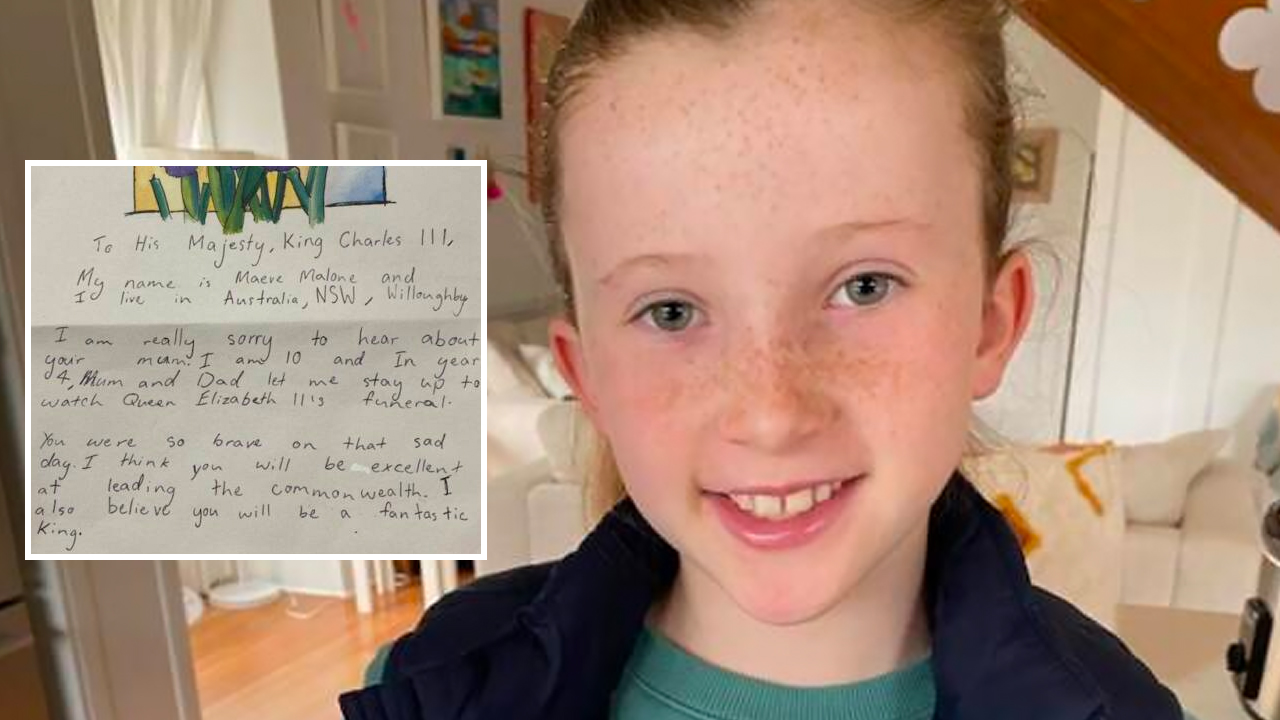 To His Majesty, King Charles III,
My name is Maeve Malone and
I live in Australia, NSW, Willoughby
I am really sorry to hear about
your mum. I am 10 and In year
4, Mum and Dad let me stay up to
watch Queen Elizabeth II's funeral.
You were so brave on that sad
day. I think you will be excellent
at leading the commonwealth. I
also believe you will be a fantastic
King.